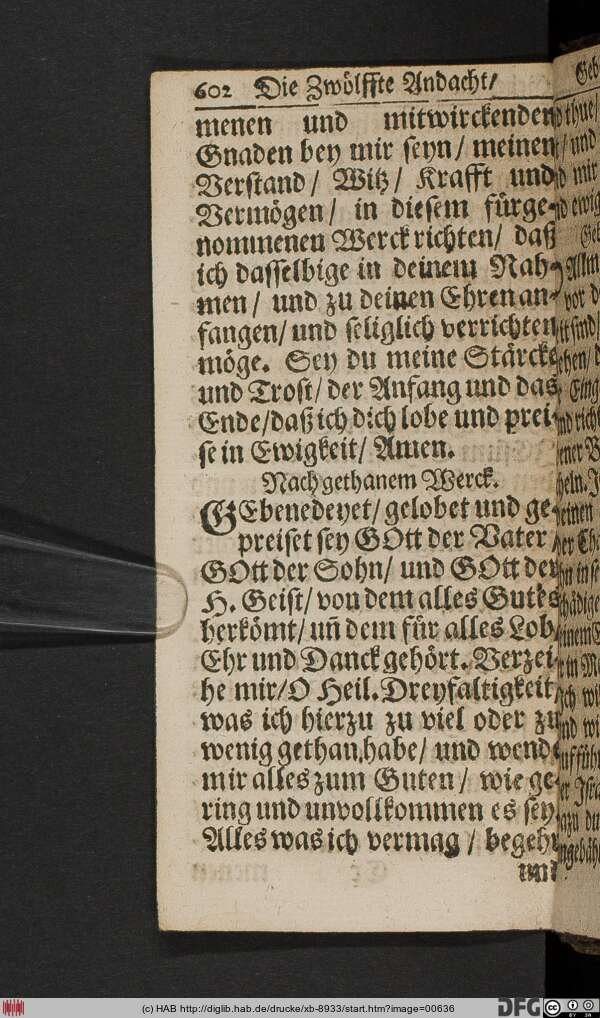 602 Die Zwölffte Andacht/
menen und mitwirckenden
Gnaden bey mir seyn/ meinen
Verstand/ Witz/ Krafft und
Vermögen/ in diesem fürge-
nommenen Werck richten/ daß
ich dasselbige in deinem Nah-
men/ und zu deinen Ehren an-
fangen/ und seliglich verrichten
möge. Sey du meine Stärcke
und Trost/ der Anfang und das
Ende/ daß ich dich lobe und prei-
se in Ewigkeit/ Amen.
Nach gethanem Werck.
GEbenedeyet/ gelobet und ge-
preiset sey GOtt der Vater
GOtt der Sohn/ und GOtt der
H. Geist/ von dem alles Gutes
herkömt/ uñ dem für alles Lob
Ehr und Danck gehört. Verzei-
he mir/ O Heil. Dreyfaltigkeit
was ich hierzu zu viel oder zu
wenig gethan habe/ und wende
mir alles zum Guten/ wie ge-
ring und unvollkommen es sey
Alles was ich vermag/ begehr
und
(c) HAB http://diglib.hab.de/drucke/xb-8933/start.htm?image=00636
DFG